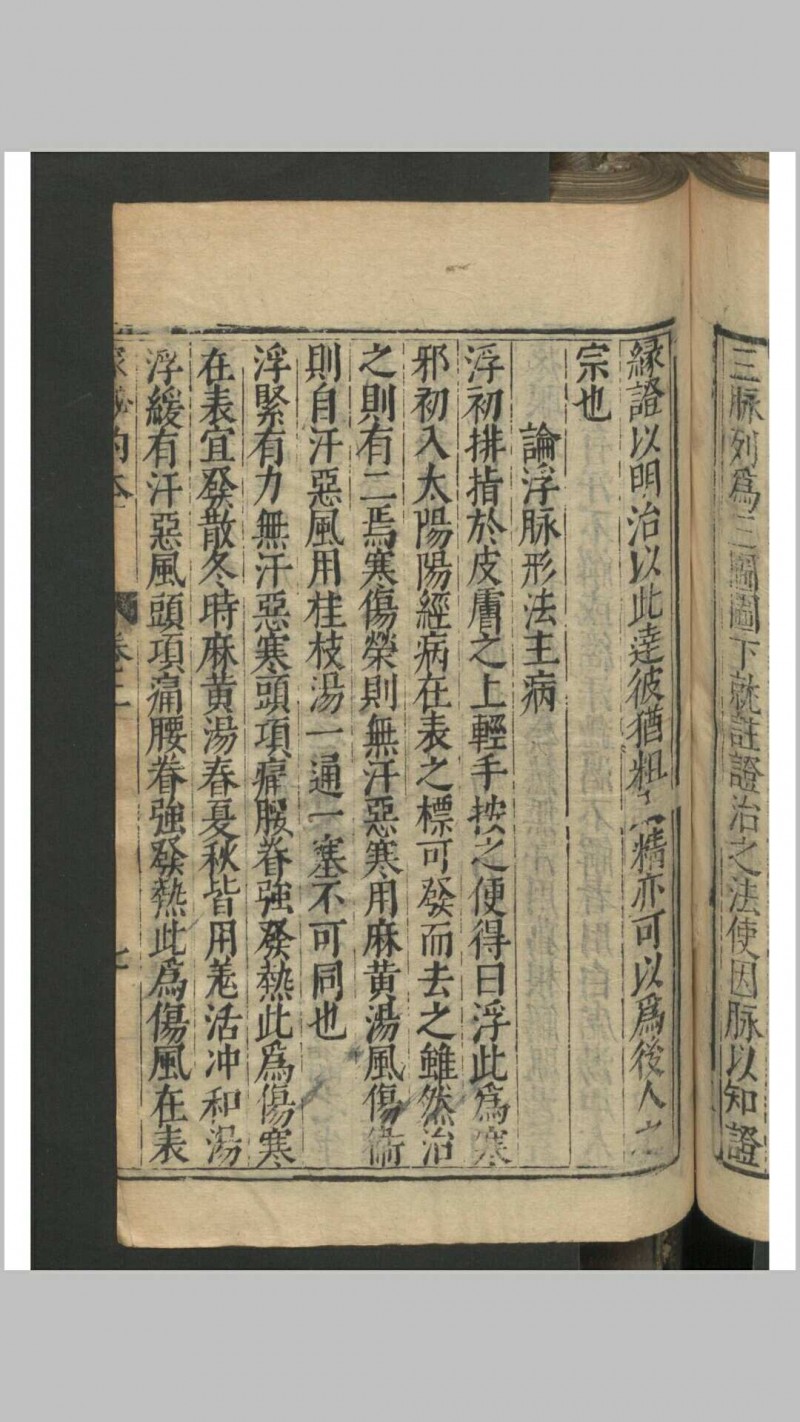 三脉列爲三圖圖下就註證治之法使因脉以知證
縁證以明治以此達彼猶粗精亦可以爲後人之
宗也
論浮脉形法主病
浮初排指於皮膚之上輕手按之便得曰浮此爲寒
邪初入太陽陽經病在表之標可發而去之雖然治
之則有二焉寒傷榮則無汗惡寒用麻黄湯風傷衞
則自汗惡風用桂枝湯一通一塞不可同也
浮緊有力無汗惡寒頭項痛腰脊強發熱此爲傷寒
在表宜發散冬時麻黄湯春夏秋皆用羗活冲和湯
浮緩有汗惡風頭項痛腰脊強發熱此爲傷風在表